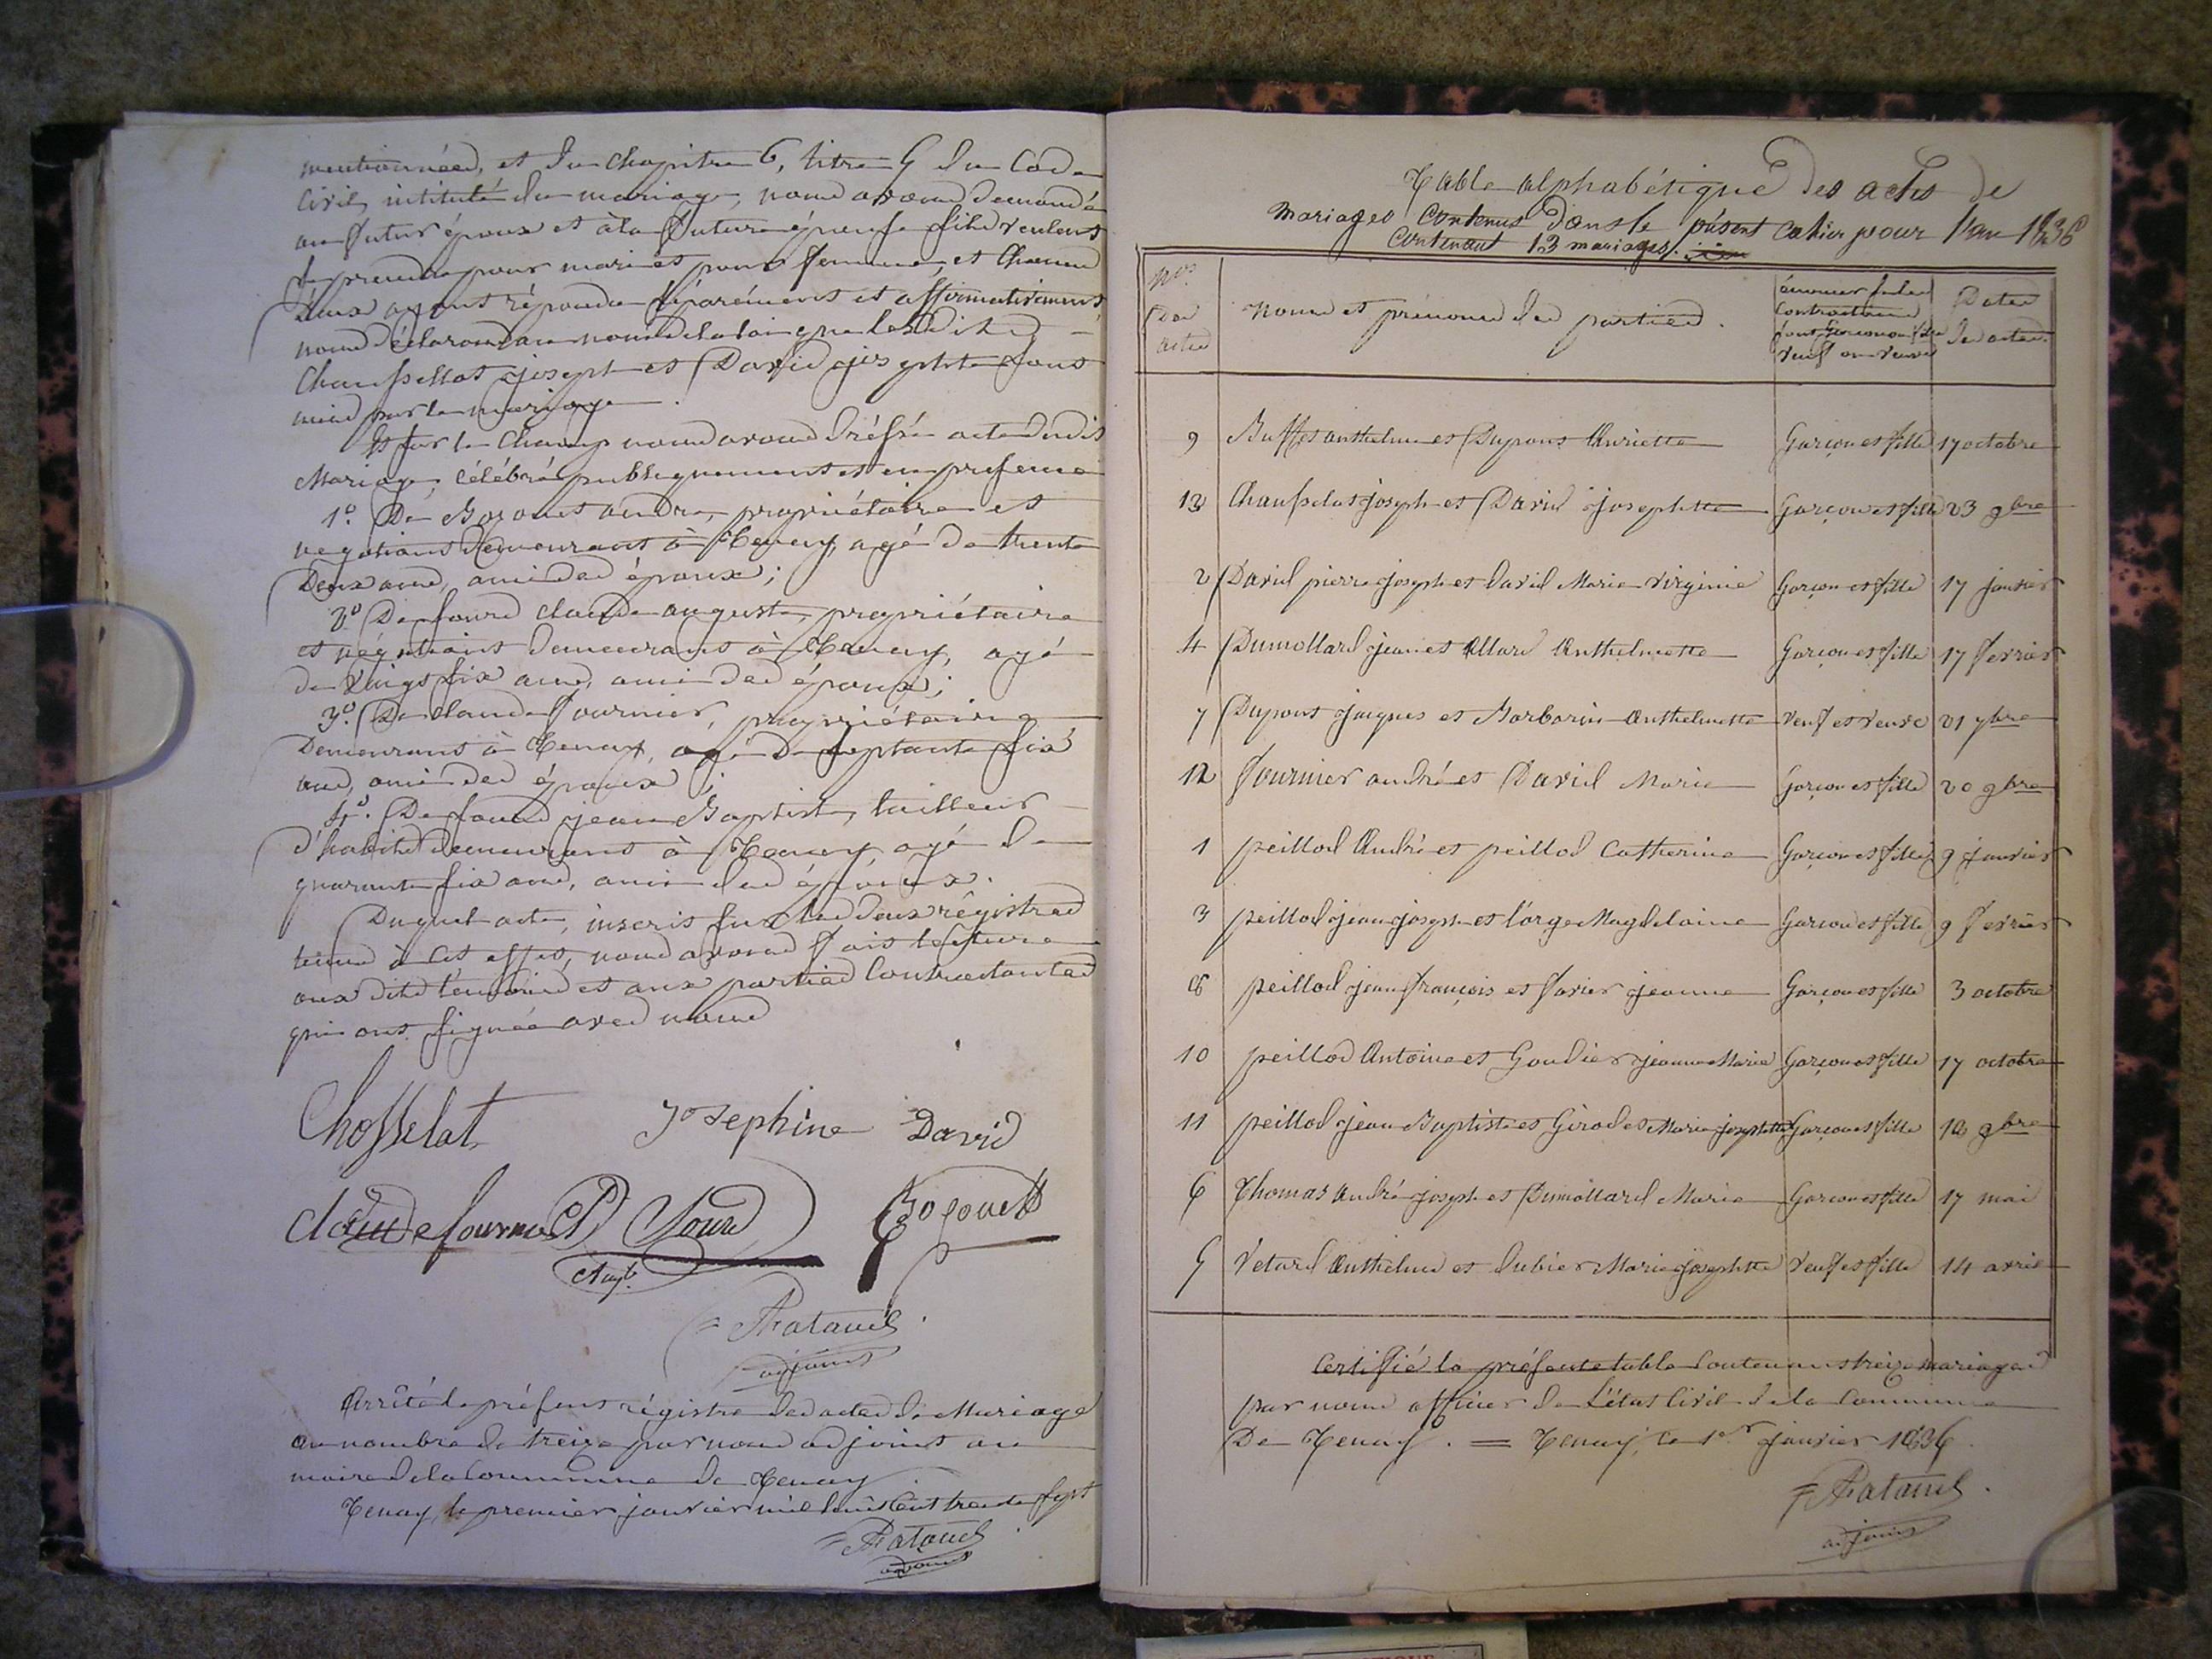 mentionnées, et du chapitre 6, titre 5 du Code
Civil, intitulé du mariage, nous avons demandé
au futur époux et à la future épouse s'ils veulent
se prendre pour mari et pour femme, et chacun
d'eux ayant répondu séparément et affirmativement,
nous déclarons au nom de la loi que les dits
Chausselat joseph et David josephte sont
unis par le mariage.
Et sur le champ nous avons dréssé acte du dit
Mariage, célébré publiquement et en presence
1º. De Bozonet andré, propriétaire et
negotiant demeurant à Tenay, agé de trente
Deux ans, ami des époux;
2º Defours claude auguste, propriétaire
et négotiant demeurant à Tenay, agé
de vingt six ans, ami des époux;
3º. De claude fournier, propriétaire
Demeurant à Tenay, agé de septante six
ans, ami des époux;
4º. Defours jean Baptiste, tailleur
d'habits demeurant à Tenay, agé de
quarante six ans, ami des époux.
Duquel acte, inscrit sur les deux régistres
tenus à cet effet, nous avons fait lecture
aux dits témoins et aux parties Contractantes
qui ont signés avec nous
Chosselat Josephine David
claude fournie D fours
Augte
= Ratanel
adjoint
Arrêté le présent régistre des actes de Mariage
au nombre de treize par nous adjoint au
maire de la Commune de Tenay
Tenay, le premier janvier mil huit cent trente sept
= Ratanel
adjoint
Table alphabétique des actes de
mariages Contenus dans le présent cahier pour l'an 1836
Contenant 13 mariages.
Nos.
des
actes
Noms et prénoms des parties.
Contractans
sont Garçon ou fille
veuf ou veuve
Dates
des actes.
9 Buffet anthelme et Dupont Henriette Garçon et fille 17 octobre
13 Chausselat joseph et David josephtte Garçon et fille 23 9bre
2 David pierre joseph et david Marie virginie Garçon et fille 17 janvier
4 Dumollard jean et Allard Anthelmette Garçon et fille 17 fevrier
7 Dupont jacques et Barbarin Anthelmette veuf et veuve 21 7bre
12 fournier andré et David Marie Garçon et fille 20 9bre
1 peillod André et peillod Catherine Garçon et fille 9 janvier
3 peillod jean joseph et l'orge Magdelaine Garçon et fille 9 fevrier
8 peillod jean françois et favier jeanne Garçon et fille 3 octobre
10 peillod Antoine et Goudier jeanne Marie Garçon et fille 17 octobre
11 peillod jean Baptiste et Girod et Marie josephtte Garçon et fille 12 9bre
6 Thomas André joseph et Dumollard Marie Garçon et fille 17 mai
5 Vetard Anthelme et dubier Marie josephtte veuf et fille 14 avril
Certifié la présente table Contenant treize mariages
par nous officier de L'état Civil de la Commune
De Tenay. = Tenay, le 1er janvier 1836.
= Ratanel.
adjoint